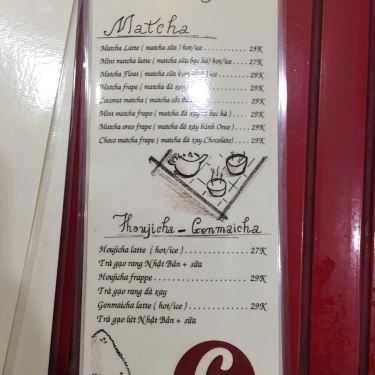 Matcha
Matcha Latte ( matcha sữa ) hot/ice .......... 25K
Mint matcha latte ( matcha sữa bạc hà) hot/ice ... 29K
Matcha Float ( matcha sữa kem ) ice .......... 29K
Matcha frape ( matcha đá xay ) .......... 29K
matcha ( matcha sữa .......... 29K
Mint matcha frape ( matcha đá xay bạc hà ) ....... 29K
Matcha oreo frape ( matcha đá xay bánh Oreo) ....... 29K
Choco matcha frape ( matcha đá xay Chocolate) .... 29K
Houjicha - Genmaicha
Houjicha latte ( hot/ice ) .......... 27K
Trà gạo rang Nhật Bản + sữa
Houjicha frappe .......... 29K
Trà gạo rang đá xay
Genmaicha latte ( hot/ice ) .......... 29K
Trà gạo lứt Nhật Bản + sữa